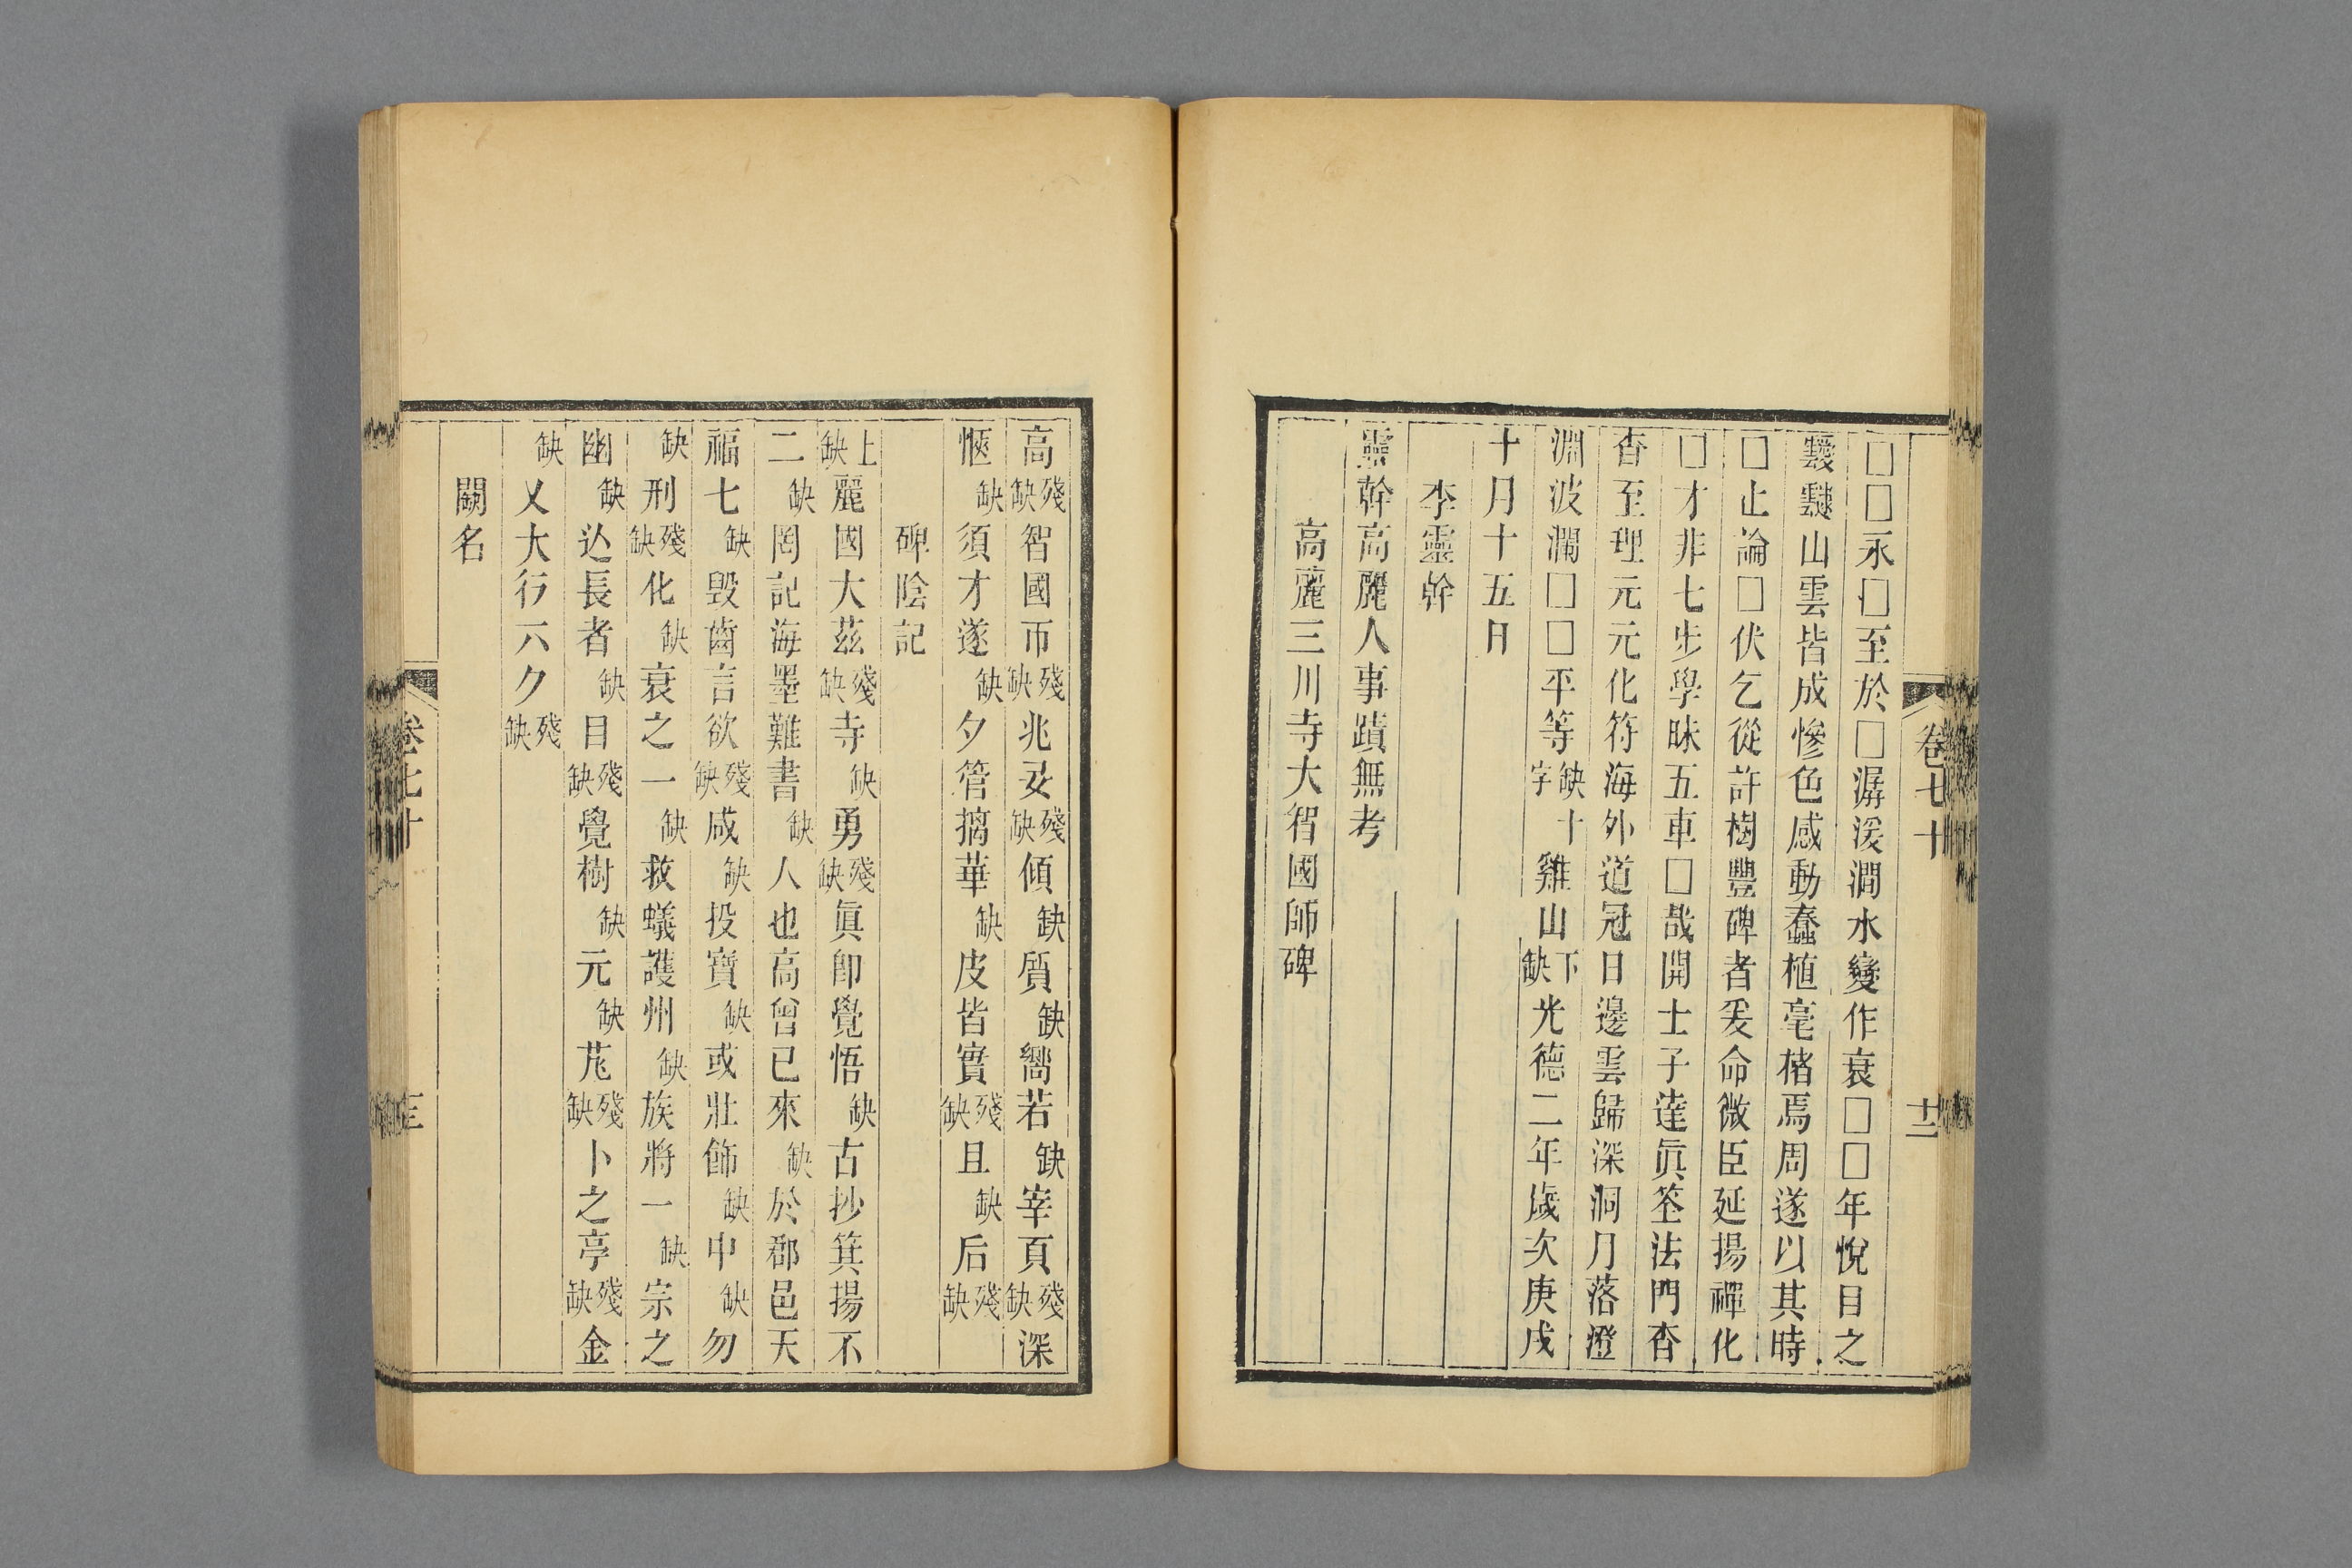 卷七十
十二
□□永□至於□潺湲澗水變作哀□□年悅目之
靉靆山雲皆成慘色感動蠢植毫楮焉周遂以其時
□止論□伏乞從許樹豐碑者爰命微臣延揚禪化
□才非七步學昧五車□哉開士子達眞筌法門杳
杳至理元元化符海外道冠日邊雲歸深洞月落澄
淵波瀾□□平等缺十字雞山下缺光德二年歲次庚戌
十月十五日
李靈幹
靈幹高麗人事蹟無考
高麗三川寺大智國師碑
高殘缺智國帀殘缺兆妛殘缺傾缺質缺嚮若缺宰頁殘缺深
愜缺須才遂缺夕管摛華缺皮皆實殘缺且缺后殘缺
碑陰記
上缺麗國大茲殘缺寺缺勇殘缺眞卽覺悟缺古抄箕揚不
二缺岡記海墨難書缺人也高曾已來缺於郡邑天
福七缺毀齒言欲殘缺咸缺投寶缺或壯飾缺中缺勿
缺刑殘缺化缺衰之一缺救蟻護州缺族將一缺宗之
幽缺迖長者缺目殘缺覺樹缺元缺芿殘缺卜之亭殘缺金
缺乂大行六夕殘缺
闕名
卷七十